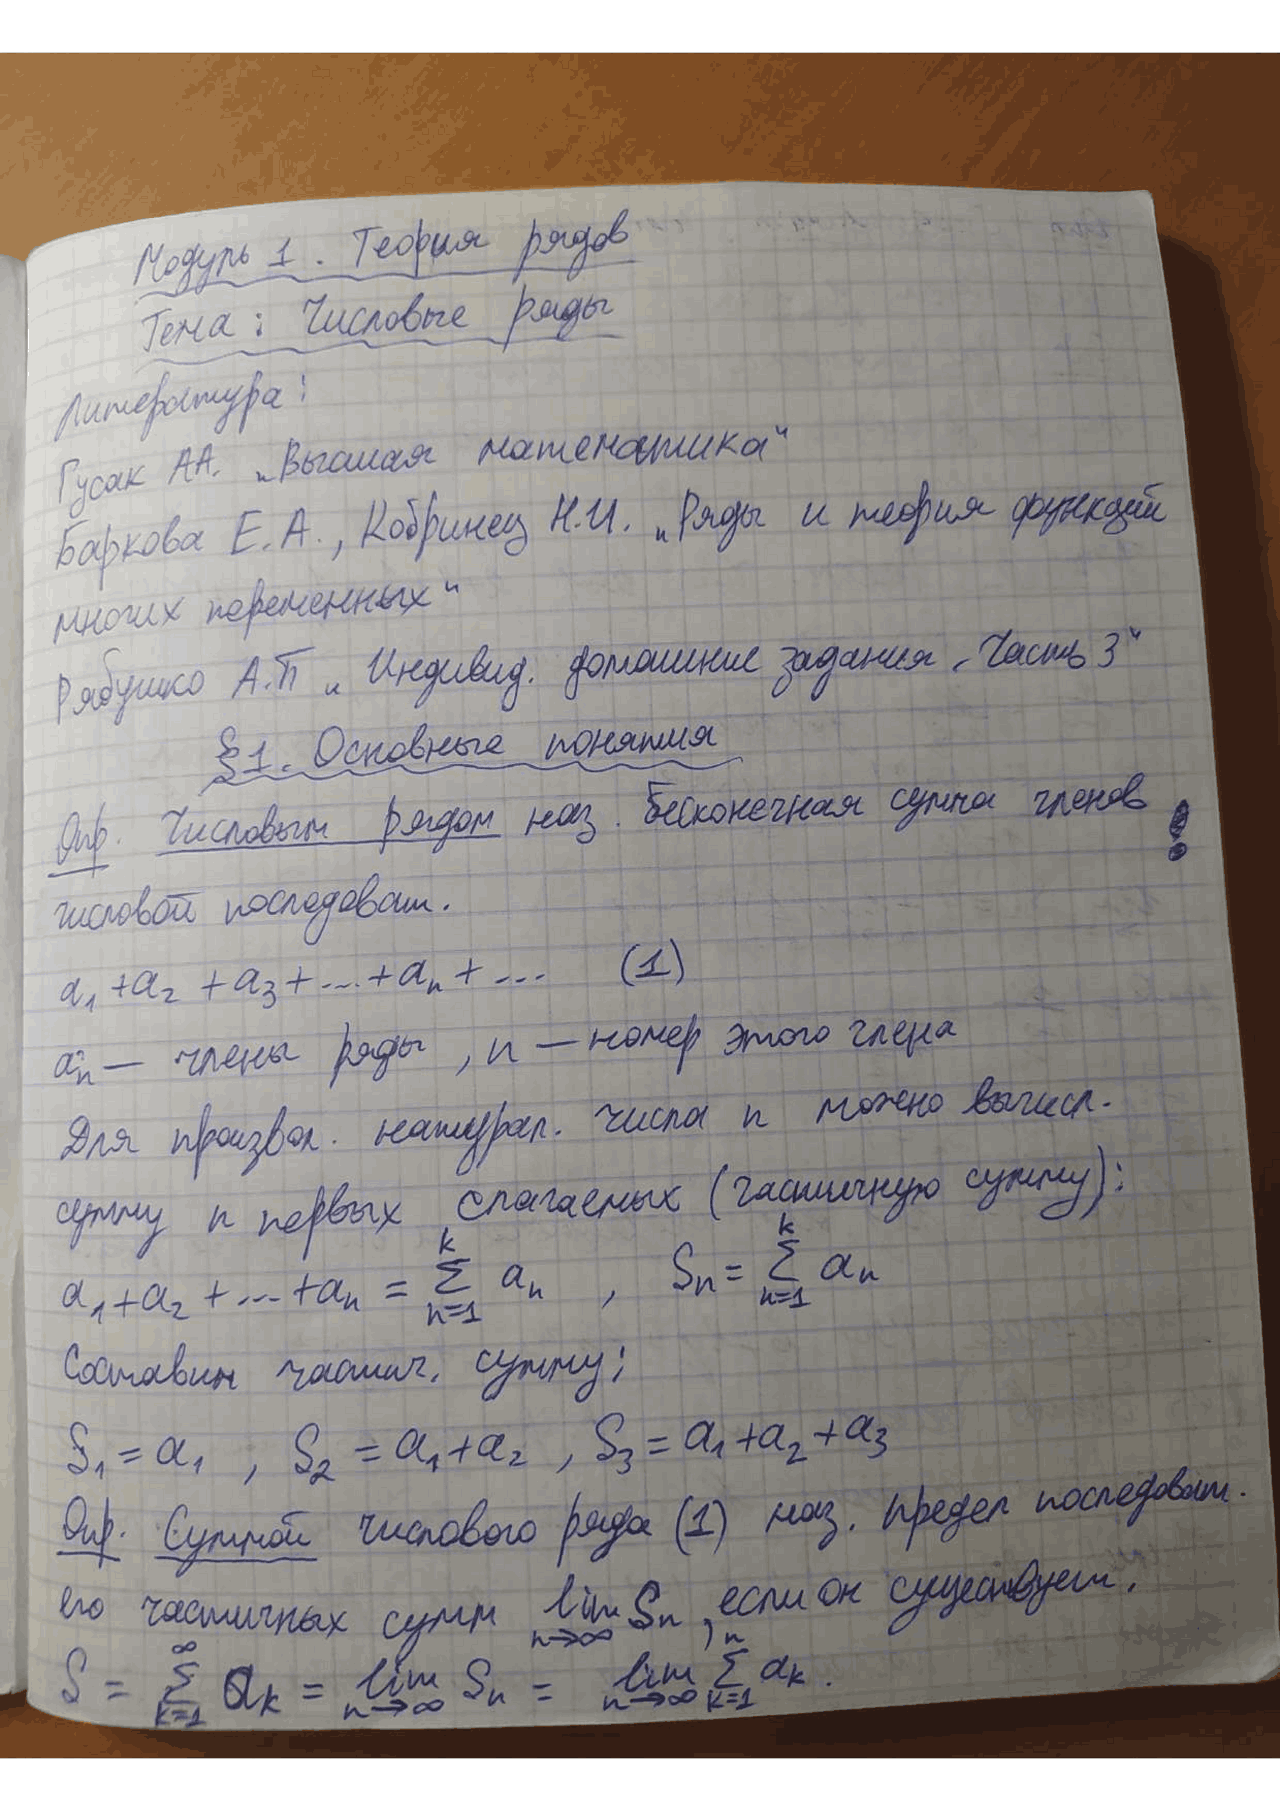 Модуль 1. Теория рядов
Тема: Числовые ряды
Литература:
Гусак А.А. „Высшая математика“
Баркова Е.А., Кобринец Н.И. „Ряды и теория функций
многих переменных“
Рябушко А.П „Индивид. домашние задания. Часть 3“
§1. Основные понятия
Опр. Числовым рядом наз. бесконечная сумма членов !
числовой последоват.
a₁ + a₂ + a₃ + ... + aₙ + ... (1)
aₙ — члены ряды, n — номер этого члена
Для произвол. натурал. числа n можно вычисл.
сумму n первых слагаемых (частичную сумму):
a₁ + a₂ + ... + aₙ = ∑ₙ₌₁ᵏ aₙ , Sₙ = ∑ₙ₌₁ᵏ aₙ
Составим частич. сумму:
S₁ = a₁ , S₂ = a₁ + a₂ , S₃ = a₁ + a₂ + a₃
Опр. Суммой числового ряда (1) наз. предел последоват.
его частичных сумм lim n→∞ Sₙ, если он существует.
S = ∑ₖ₌₁^∞ aₖ = lim n→∞ Sₙ = lim n→∞ ∑ₖ₌₁ⁿ aₖ.